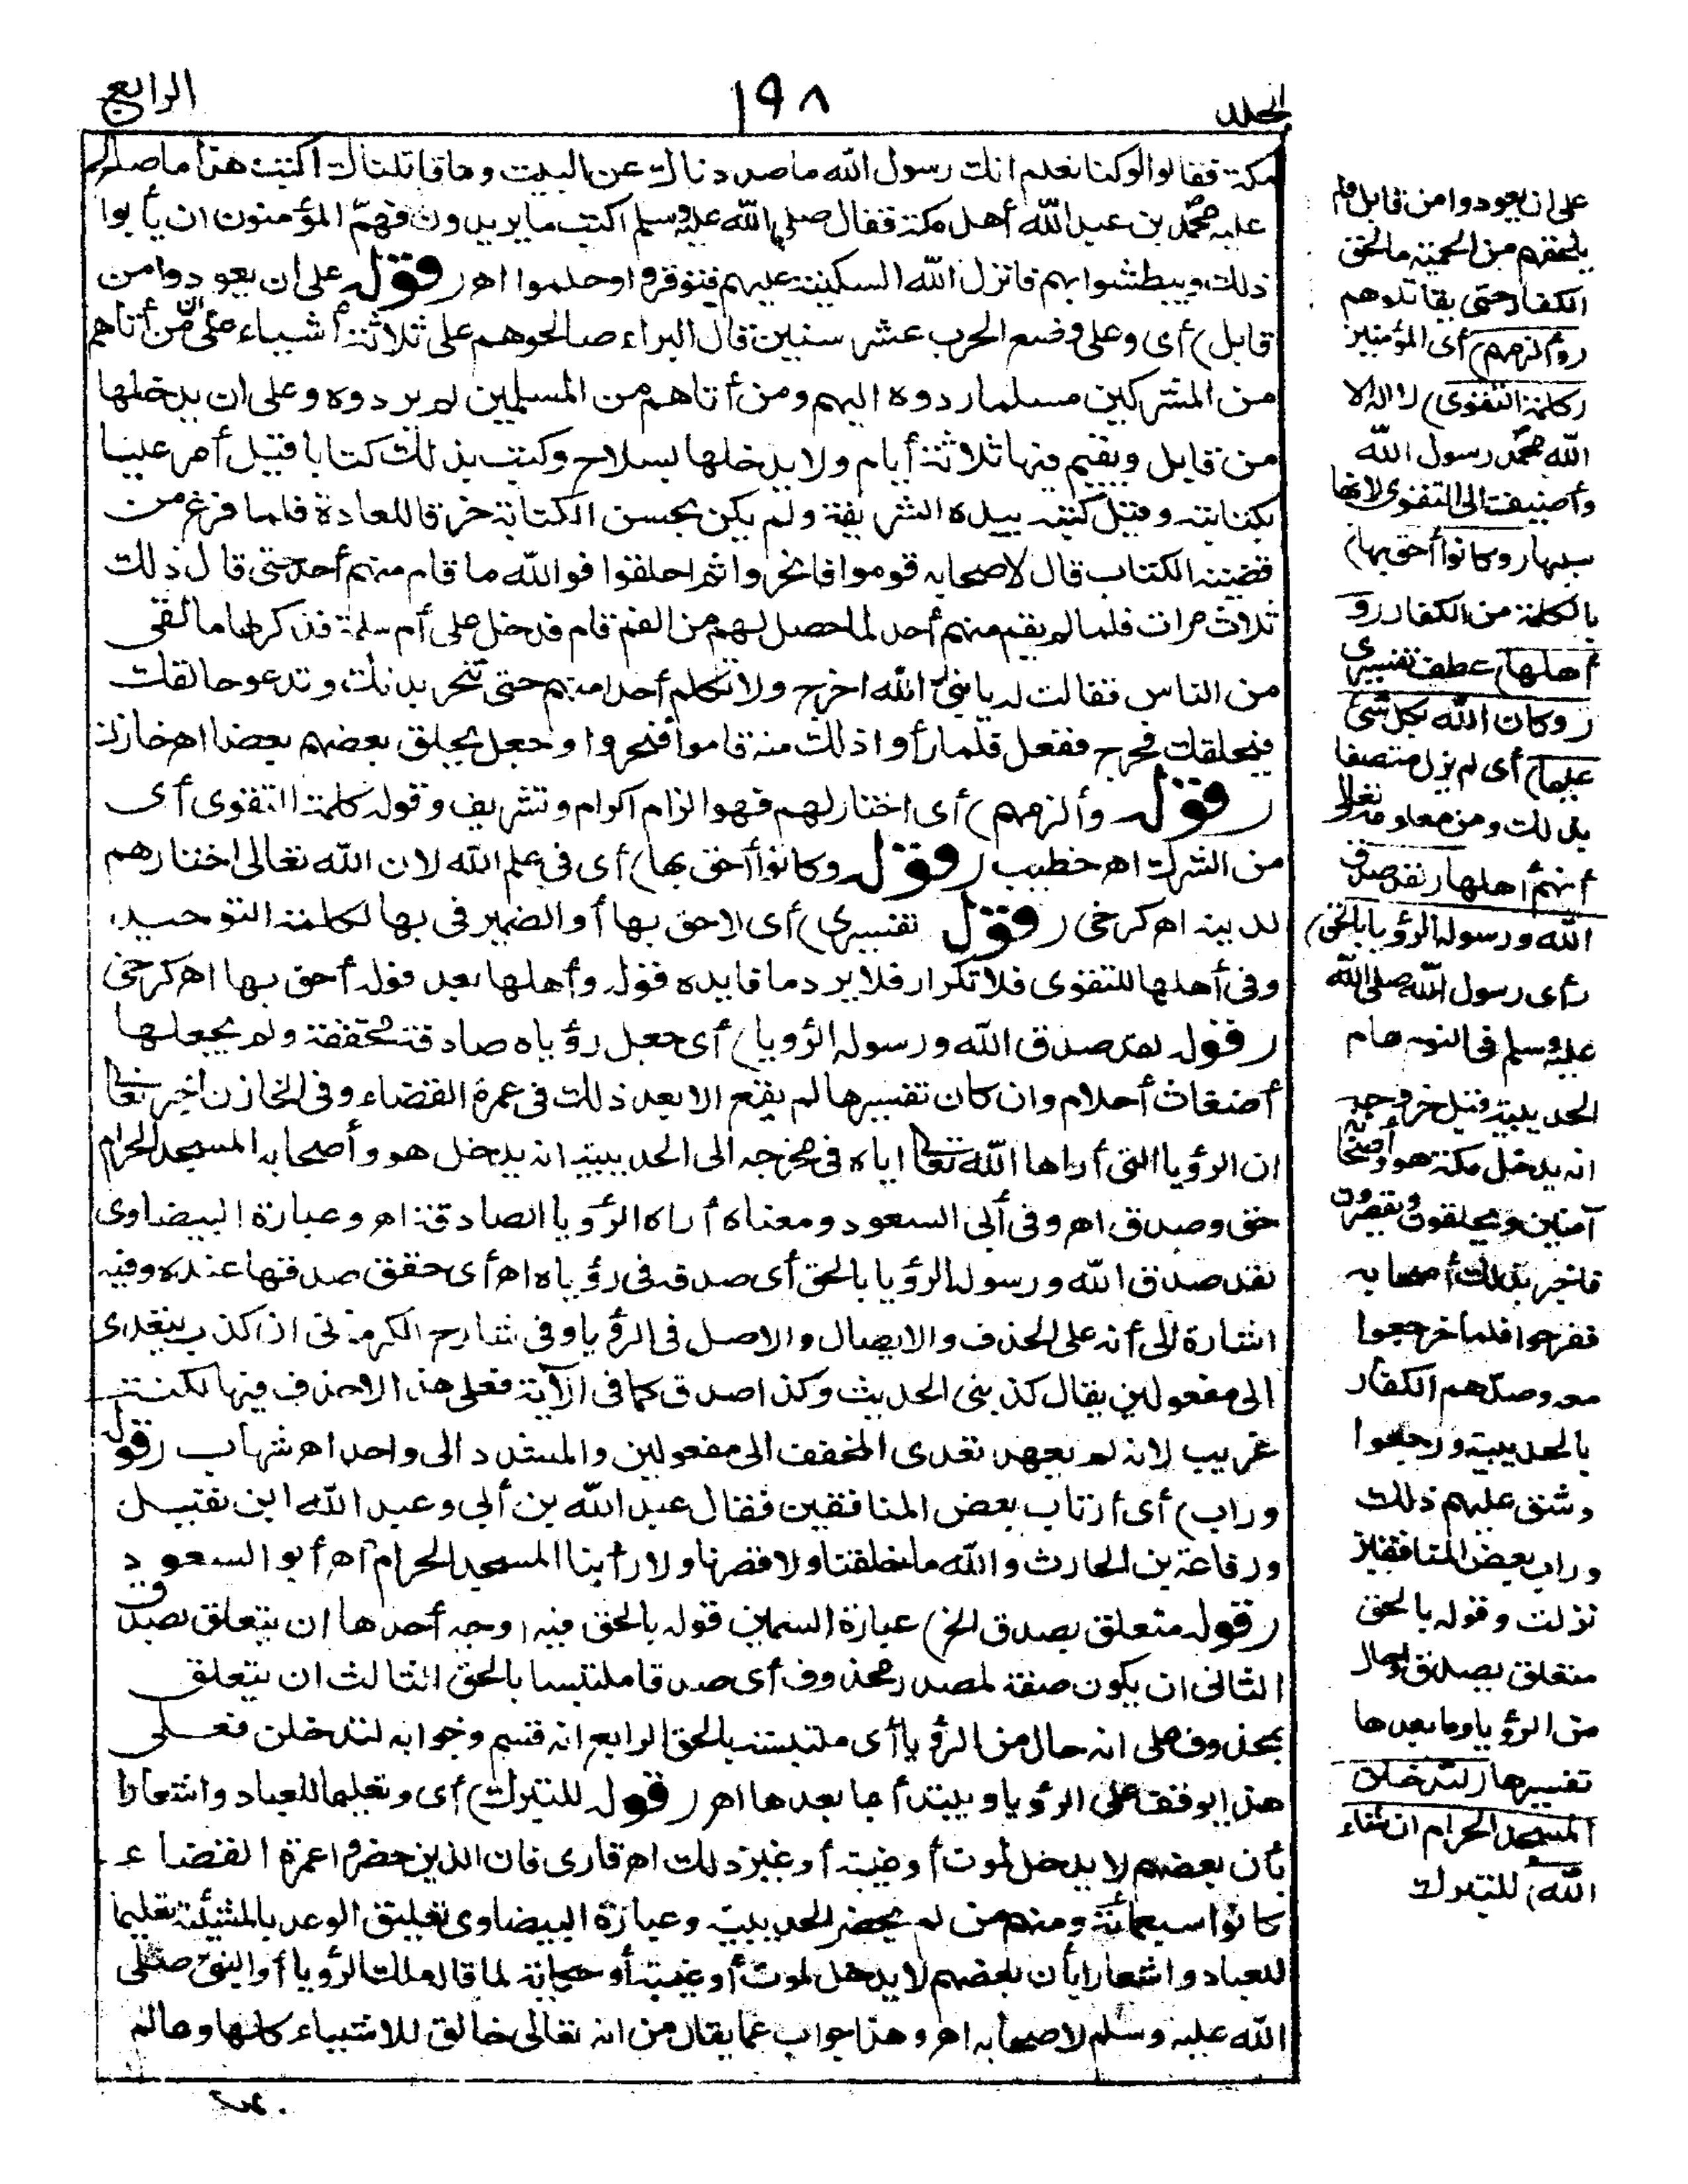 الجلد
١٩٨
الرابع
مكة فقالوا لو كنا نعلم انك رسول الله ما صددناك عن البيت وما قاتلناك اكتب هذا ما صالح
عليه محمد بن عبد الله أهل مكة فقال صلى الله عليه وسلم اكتب ما يريدون فهمّ المؤمنون ان يأبوا
ذلك ويبطشوا بهم فانزل الله السكينة عليهم فتوقروا وحلموا اهـ (قوله على ان يعودوا من
قابل) أى وعلى وضع الحرب عشر سنين قال البراء صالحوهم على ثلاثة أشياء على أن من أتاهم
من المشركين مسلما ردوه اليهم ومن أتاهم من المسلمين لم يردوه وعلى ان يدخلها
من قابل ويقيم فيها ثلاثة أيام ولا يدخلها بسلاح وكتب بذلك كتابا قيل أمر عليا
بكتابته وقيل كتبه بيده الشريفة ولم يكن يحسن الكتابة خرقا للعادة فلما فرغ من
قضية الكتاب قال لاصحابه قوموا فانحروا ثم احلقوا فوالله ما قام منهم أحد حتى قال ذلك
ثلاث مرات فلما لم يقم منهم أحد لما حصل لهم من الغم قام فدخل على أم سلمة فذكر لها ما لقى
من الناس فقالت له يا نبىّ الله اخرج ولا تكلم أحدا منهم حتى تنحر بدنك وتدعو حالقك
فيحلقك فخرج ففعل فلما رأوا ذلك منه قاموا فنحروا وجعل يحلق بعضهم بعضا اهـ خازن
(قوله وألزمهم) أى اختار لهم فهو الزام اكرام وتشريف وقوله كلمة التقوى أى
من الشرك اهـ خطيب (قوله وكانوا أحق بها) أى فى علم الله لان الله تعالى اختارهم
لدينه اهـ كرخى (قوله تفسيرى) أى لاحق بها أو الضمير فى بها لكلمة التوحيد
وفى أهلها للتقوى فلا تكرار فلا يرد ما فايدة قوله وأهلها بعد قوله أحق بها اهـ كرخى
(قوله لقد صدق الله ورسوله الرؤيا) أى جعل رؤياه صادقة محققة ولم يجعلها
أضغاث أحلام وان كان تفسيرها لم يقع الا بعد ذلك فى عمرة القضاء وفى الخازن اخبر تعالى
ان الرؤيا التى أراها الله تعالى اياه فى مخرجه الى الحديبية انه يدخل هو وأصحابه المسجد الحرام
حق وصدق اهـ وفى أبى السعود ومعناه أراه الرؤيا الصادقة اهـ وعبارة البيضاوى
لقد صدق الله ورسوله الرؤيا بالحق أى صدقه فى رؤياه اهـ أى حقق صدقها عنده وفيه
اشارة الى أنه على الحذف والايصال والاصل فى الرؤيا وفى شارح الكرمانى اذا كذب يتعدى
الى مفعولين يقال كذبنى الحديث وكذا صدق كما فى الآية فعلى هذا لا حذف فيها لكنه
غريب لانه لم يعهد تعدى المخفف الى مفعولين والمشدد الى واحد اهـ شهاب (قوله
وراب) أى ارتاب بعض المنافقين فقال عبد الله بن أبي وعبد الله ابن نفتيل
ورفاعة بن الحارث والله ما حلقنا ولا قصرنا ولا رأينا المسجد الحرام اهـ أبو السعود
(قوله متعلق بصدق الخ) عبارة السمين قوله بالحق فيه اوجه أحدها ان يتعلق بصدق
الثانى ان يكون صفة لمصدر محذوف أى صدقا ملتبسا بالحق الثالث ان يتعلق
بمحذوف على انه حال من الرؤيا أى ملتبسة بالحق الرابع انه قسم وجوابه لتدخلن فعلى
هذا يوقف على الرؤيا ويبتدأ بما بعدها اهـ (قوله للتبرك) أى وتعليما للعباد واشعارا
بأن بعضهم لا يدخل لموت أو غيبة أو غير ذلك اهـ قارى فان الذين حضروا عمرة القضاء
كانوا سبعمائة ومنهم من لم يحضر الحديبية وعبارة البيضاوى تعليق الوعد بالمشيئة تعليما
للعباد واشعارا بأن بعضهم لا يدخل لموت أو غيبة أو حكاية لما قاله ملك الرؤيا أو النبىّ صلى
الله عليه وسلم لاصحابه اهـ وهذا جواب عما يقال من انه تعالى خالق للاشياء كلها وعالم
على ان يعودوا من قابل ولم
يلحقهم من الحمية ما لحق
الكفار حتى يقاتلوهم
(وألزمهم) أى المؤمنين
(كلمة التقوى) لا اله الا
الله محمد رسول الله
وأضيفت الى التقوى لانها
سببها (وكانوا أحق بها)
بالكلمة من الكفار (و
أهلها) عطف تفسيرى
(وكان الله بكل شئ
عليما) أى لم يزل متصفا
بذلك ومن معلومه تعالى
أنهم أهلها (لقد صدق
الله ورسوله الرؤيا بالحق)
رأى رسول الله صلى الله
عليه وسلم فى النوم عام
الحديبية قبل خروجه
انه يدخل مكة هو وأصحابه
آمنين ويحلقون ويقصرون
فاخبر بذلك أصحابه
ففرحوا فلما خرجوا
معه وصدهم الكفار
بالحديبية ورجعوا
وشق عليهم ذلك
وراب بعض المنافقين
نزلت وقوله بالحق
متعلق بصدق او حال
من الرؤيا وما بعدها
تفسيرها (لتدخلن
المسجد الحرام ان شاء
الله) للتبرك